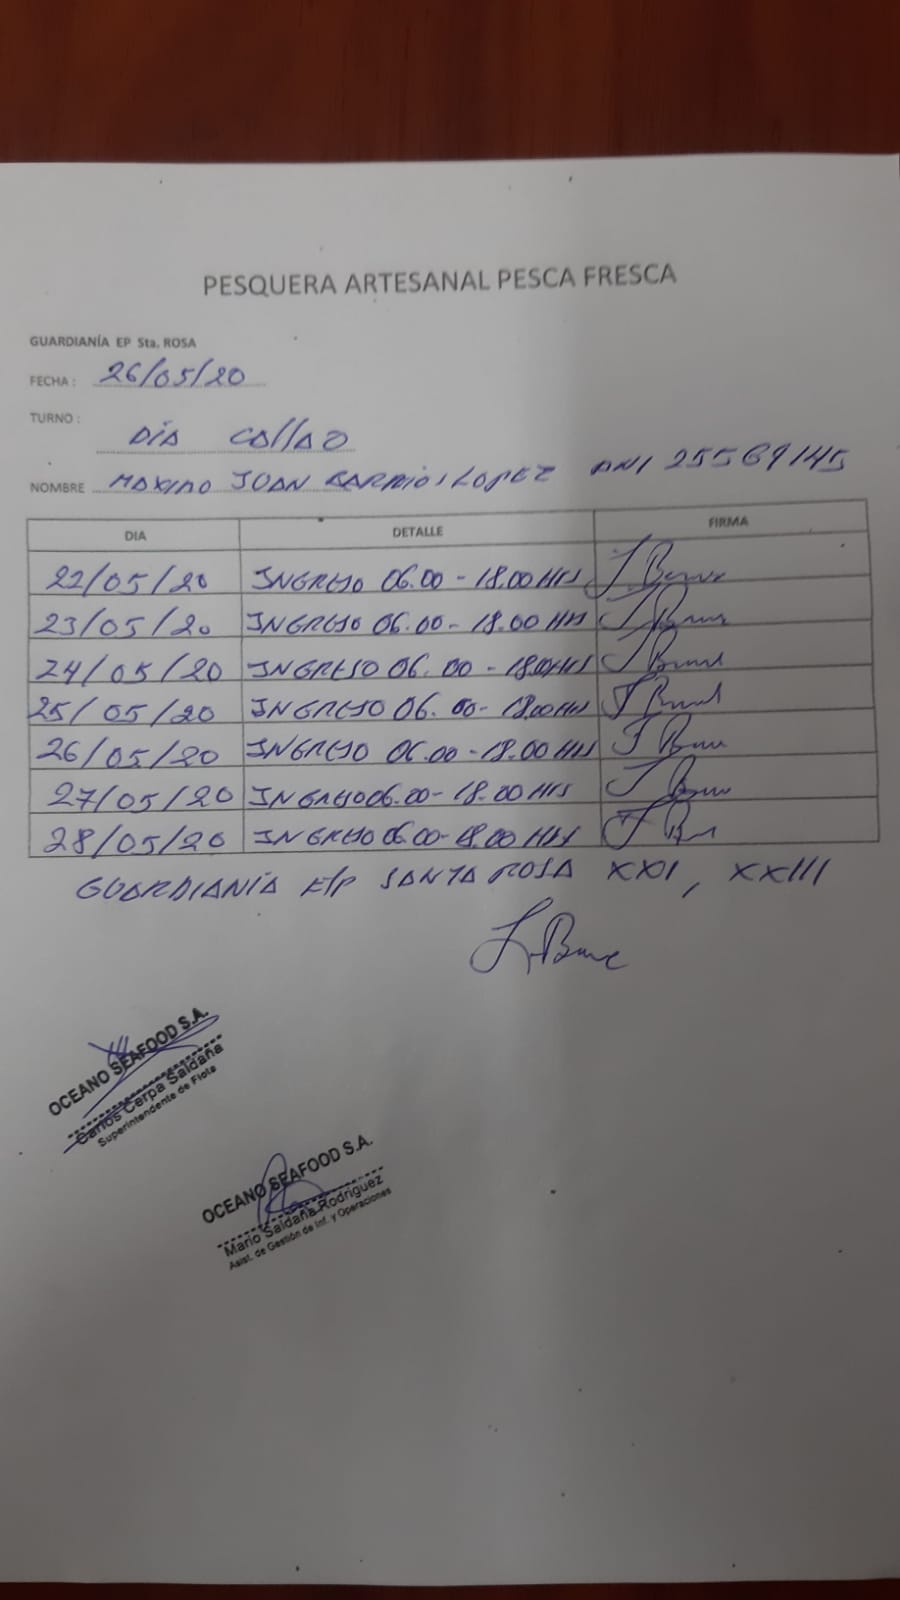 PESQUERA ARTESANAL PESCA FRESCA
GUARDIANÍA EP Sta. ROSA
FECHA: 26/05/20
TURNO:
DIA CALLAO
NOMBRE MAXIMO JUAN BARRIOS LOPEZ DNI 25569145
DIA DETALLE FIRMA
22/05/20 INGRESO 06.00 - 18.00 HRS
23/05/20 INGRESO 06.00 - 18.00 HRS
24/05/20 INGRESO 06.00 - 18.00 HRS
25/05/20 INGRESO 06.00 - 18.00 HRS
26/05/20 INGRESO 06.00 - 18.00 HRS
27/05/20 INGRESO 06.00 - 18.00 HRS
28/05/20 INGRESO 06.00 - 18.00 HRS
GUARDIANÍA E/P SANTA ROSA XXI, XXIII
OCEANO SEAFOOD S.A.
Carlos Cerpa Saldaña
Superintendente de Flota
OCEANO SEAFOOD S.A.
Mario Saldaña Rodriguez
Asist. de Gestión de Inf. y Operaciones